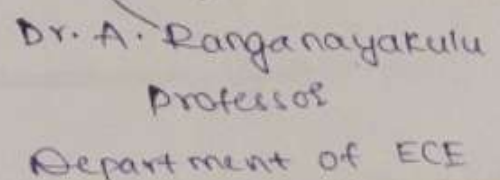 Dr. A. Ranganayakulu
Professor
Department of ECE